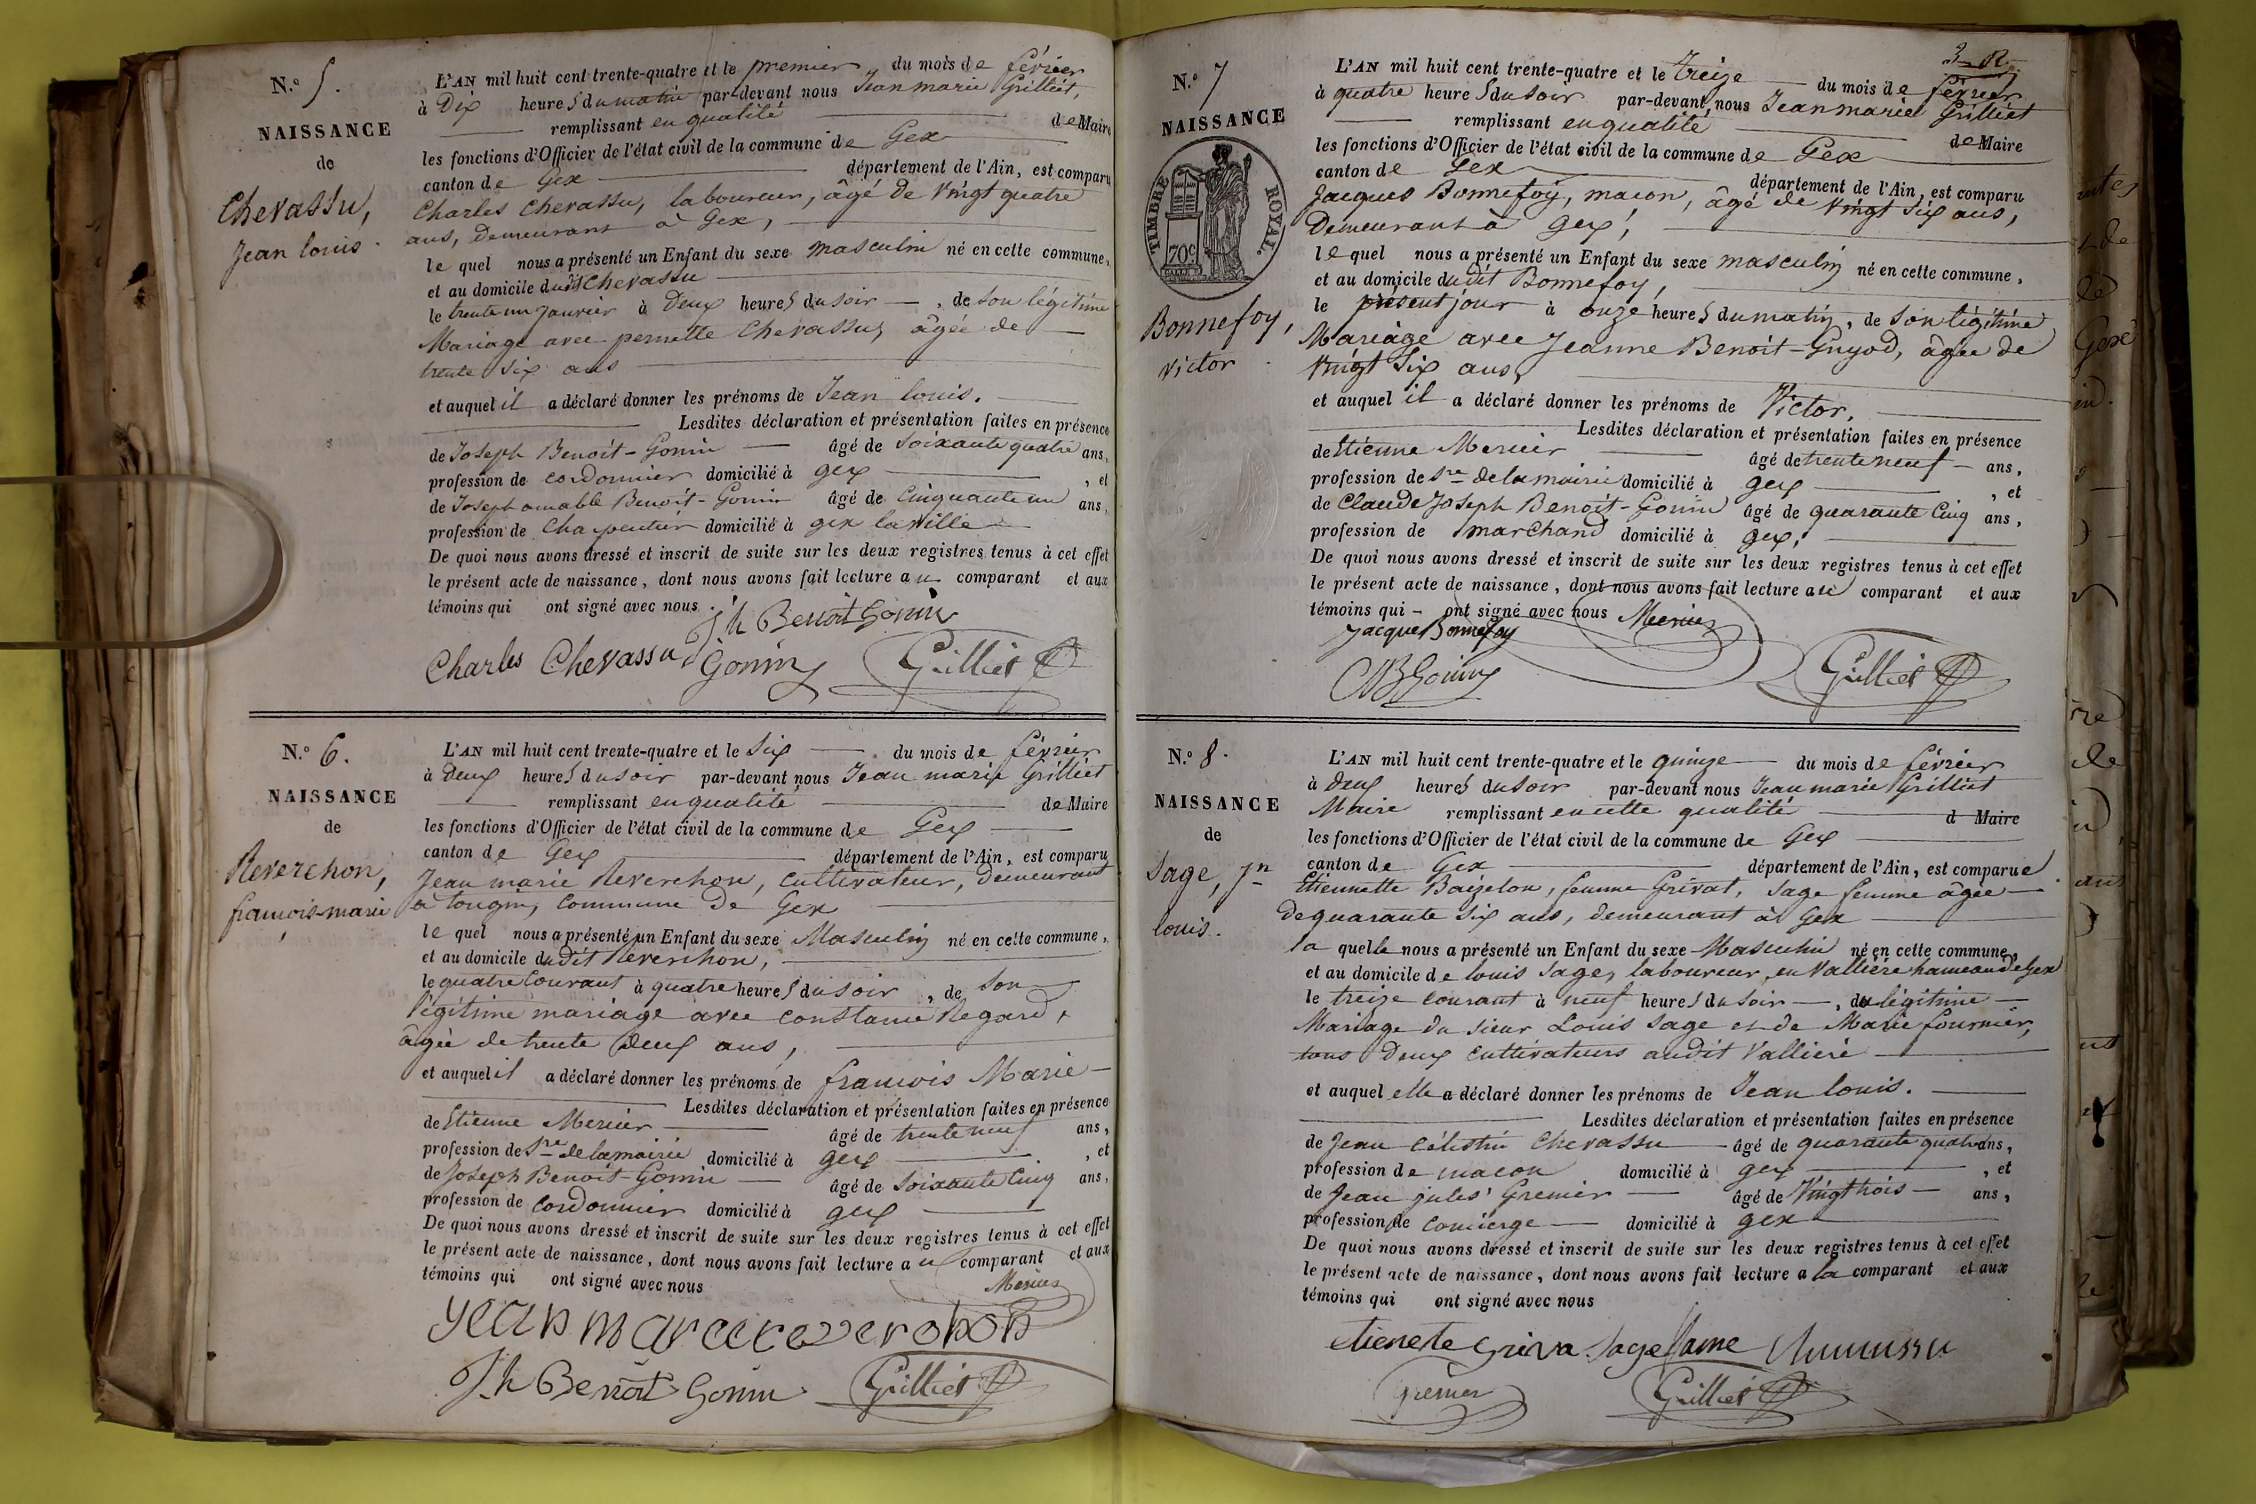 N.° 5.
NAISSANCE
de
Chevassu,
Jean louis.
L'AN mil huit cent trente-quatre et le premier du mois de février
à Dix heures du matin par-devant nous Jean marie Grilliet,
remplissant en qualité de Maire
les fonctions d'Officier de l'état civil de la commune de Gex
canton de Gex département de l'Ain, est comparu
Charles Chevassu, laboureur, âgé de vingt quatre
ans, demeurant à Gex,
le quel nous a présenté un Enfant du sexe masculin né en cette commune,
et au domicile dudit Chevassu
le trente un janvier à Deux heures du soir, de son légitime
Mariage avec pernette Chevassu, âgée de
trente six ans
et auquel il a déclaré donner les prénoms de Jean louis.
Lesdites déclaration et présentation faites en présence
de Joseph Benoit-Gonin âgé de soixante quatre ans,
profession de cordonnier domicilié à gex, et
de Joseph amable Benoit-Gonin âgé de Cinquante un ans,
profession de Charpentier domicilié à gex la ville
De quoi nous avons dressé et inscrit de suite sur les deux registres tenus à cet effet
le présent acte de naissance, dont nous avons fait lecture au comparant et aux
témoins qui ont signé avec nous.
Jh Benoit Gonin
Charles Chevassu Gonin Grilliet
N.° 6.
NAISSANCE
de
Reverchon,
françois-marie
L'AN mil huit cent trente-quatre et le six du mois de février
à deux heures du soir par-devant nous Jean marie Grilliet
remplissant en qualité de Maire
les fonctions d'Officier de l'état civil de la commune de Gex
canton de Gex département de l'Ain, est comparu
Jean marie Reverchon, cultivateur, demeurant
à tougin, commune de Gex
le quel nous a présenté un Enfant du sexe Masculin né en cette commune,
et au domicile dudit Reverchon,
le quatre Courant à quatre heures du soir, de son
légitime mariage avec constance Regard,
âgée de trente deux ans,
et auquel il a déclaré donner les prénoms de françois Marie
Lesdites déclaration et présentation faites en présence
de Etienne Mercier âgé de trente neuf ans,
profession de Sre de la mairie domicilié à gex, et
de Joseph Benoit-Gonin âgé de soixante Cinq ans,
profession de Cordonnier domicilié à gex
De quoi nous avons dressé et inscrit de suite sur les deux registres tenus à cet effet
le présent acte de naissance, dont nous avons fait lecture au comparant et aux
témoins qui ont signé avec nous
Mercier
Jean marie reverchon
Jh Benoit Gonin Grilliet
3-R
N.° 7
NAISSANCE
TIMBRE ROYAL
70c
Bonnefoy,
victor
L'AN mil huit cent trente-quatre et le treize du mois de février
à quatre heures du soir par-devant nous Jean marie Grilliet
remplissant en qualité de Maire
les fonctions d'Officier de l'état civil de la commune de Gex
canton de Gex département de l'Ain, est comparu
Jacques Bonnefoy, macon, âgé de vingt six ans,
Demeurant à gex,
le quel nous a présenté un Enfant du sexe masculin né en cette commune,
et au domicile dudit Bonnefoy,
le présent jour à onze heures du matin, de son légitime
Mariage avec Jeanne Benoit-Guyod, âgée de
vingt six ans,
et auquel il a déclaré donner les prénoms de Victor,
Lesdites déclaration et présentation faites en présence
de Etienne Mercier âgé de trente neuf ans,
profession de Sre de la mairie domicilié à gex, et
de Claude Joseph Benoit-Gonin âgé de quarante Cinq ans,
profession de marchand domicilié à gex,
De quoi nous avons dressé et inscrit de suite sur les deux registres tenus à cet effet
le présent acte de naissance, dont nous avons fait lecture au comparant et aux
témoins qui ont signé avec nous Mercier
Jacque Bonnefoy
CJBGonin Grilliet
N.° 8.
NAISSANCE
de
Sage, Jn
louis.
L'AN mil huit cent trente-quatre et le quinze du mois de février
à deux heures du soir par-devant nous Jean marie Grilliet
Maire remplissant en cette qualité d Maire
les fonctions d'Officier de l'état civil de la commune de Gex
canton de Gex département de l'Ain, est comparue
Etiennette Baizelon, femme Grivat, sage femme âgée
de quarante six ans, demeurant à Gex
la quelle nous a présenté un Enfant du sexe Masculin né en cette commune,
et au domicile de louis Sage, laboureur, en Vallière hameau de Gex
le treize courant à neuf heures du soir, du légitime
Mariage du sieur Louis Sage et de Marie fournier,
tous deux cultivateurs audit Vallière
et auquel elle a déclaré donner les prénoms de Jean louis.
Lesdites déclaration et présentation faites en présence
de Jean Célestin Chevassu âgé de quarante quatre ans,
profession de macon domicilié à gex, et
de Jean jules Grenier âgé de Vingt trois ans,
profession de concierge domicilié à gex
De quoi nous avons dressé et inscrit de suite sur les deux registres tenus à cet effet
le présent acte de naissance, dont nous avons fait lecture a la comparant et aux
témoins qui ont signé avec nous
etienete griva sage fame
grenier Grilliet